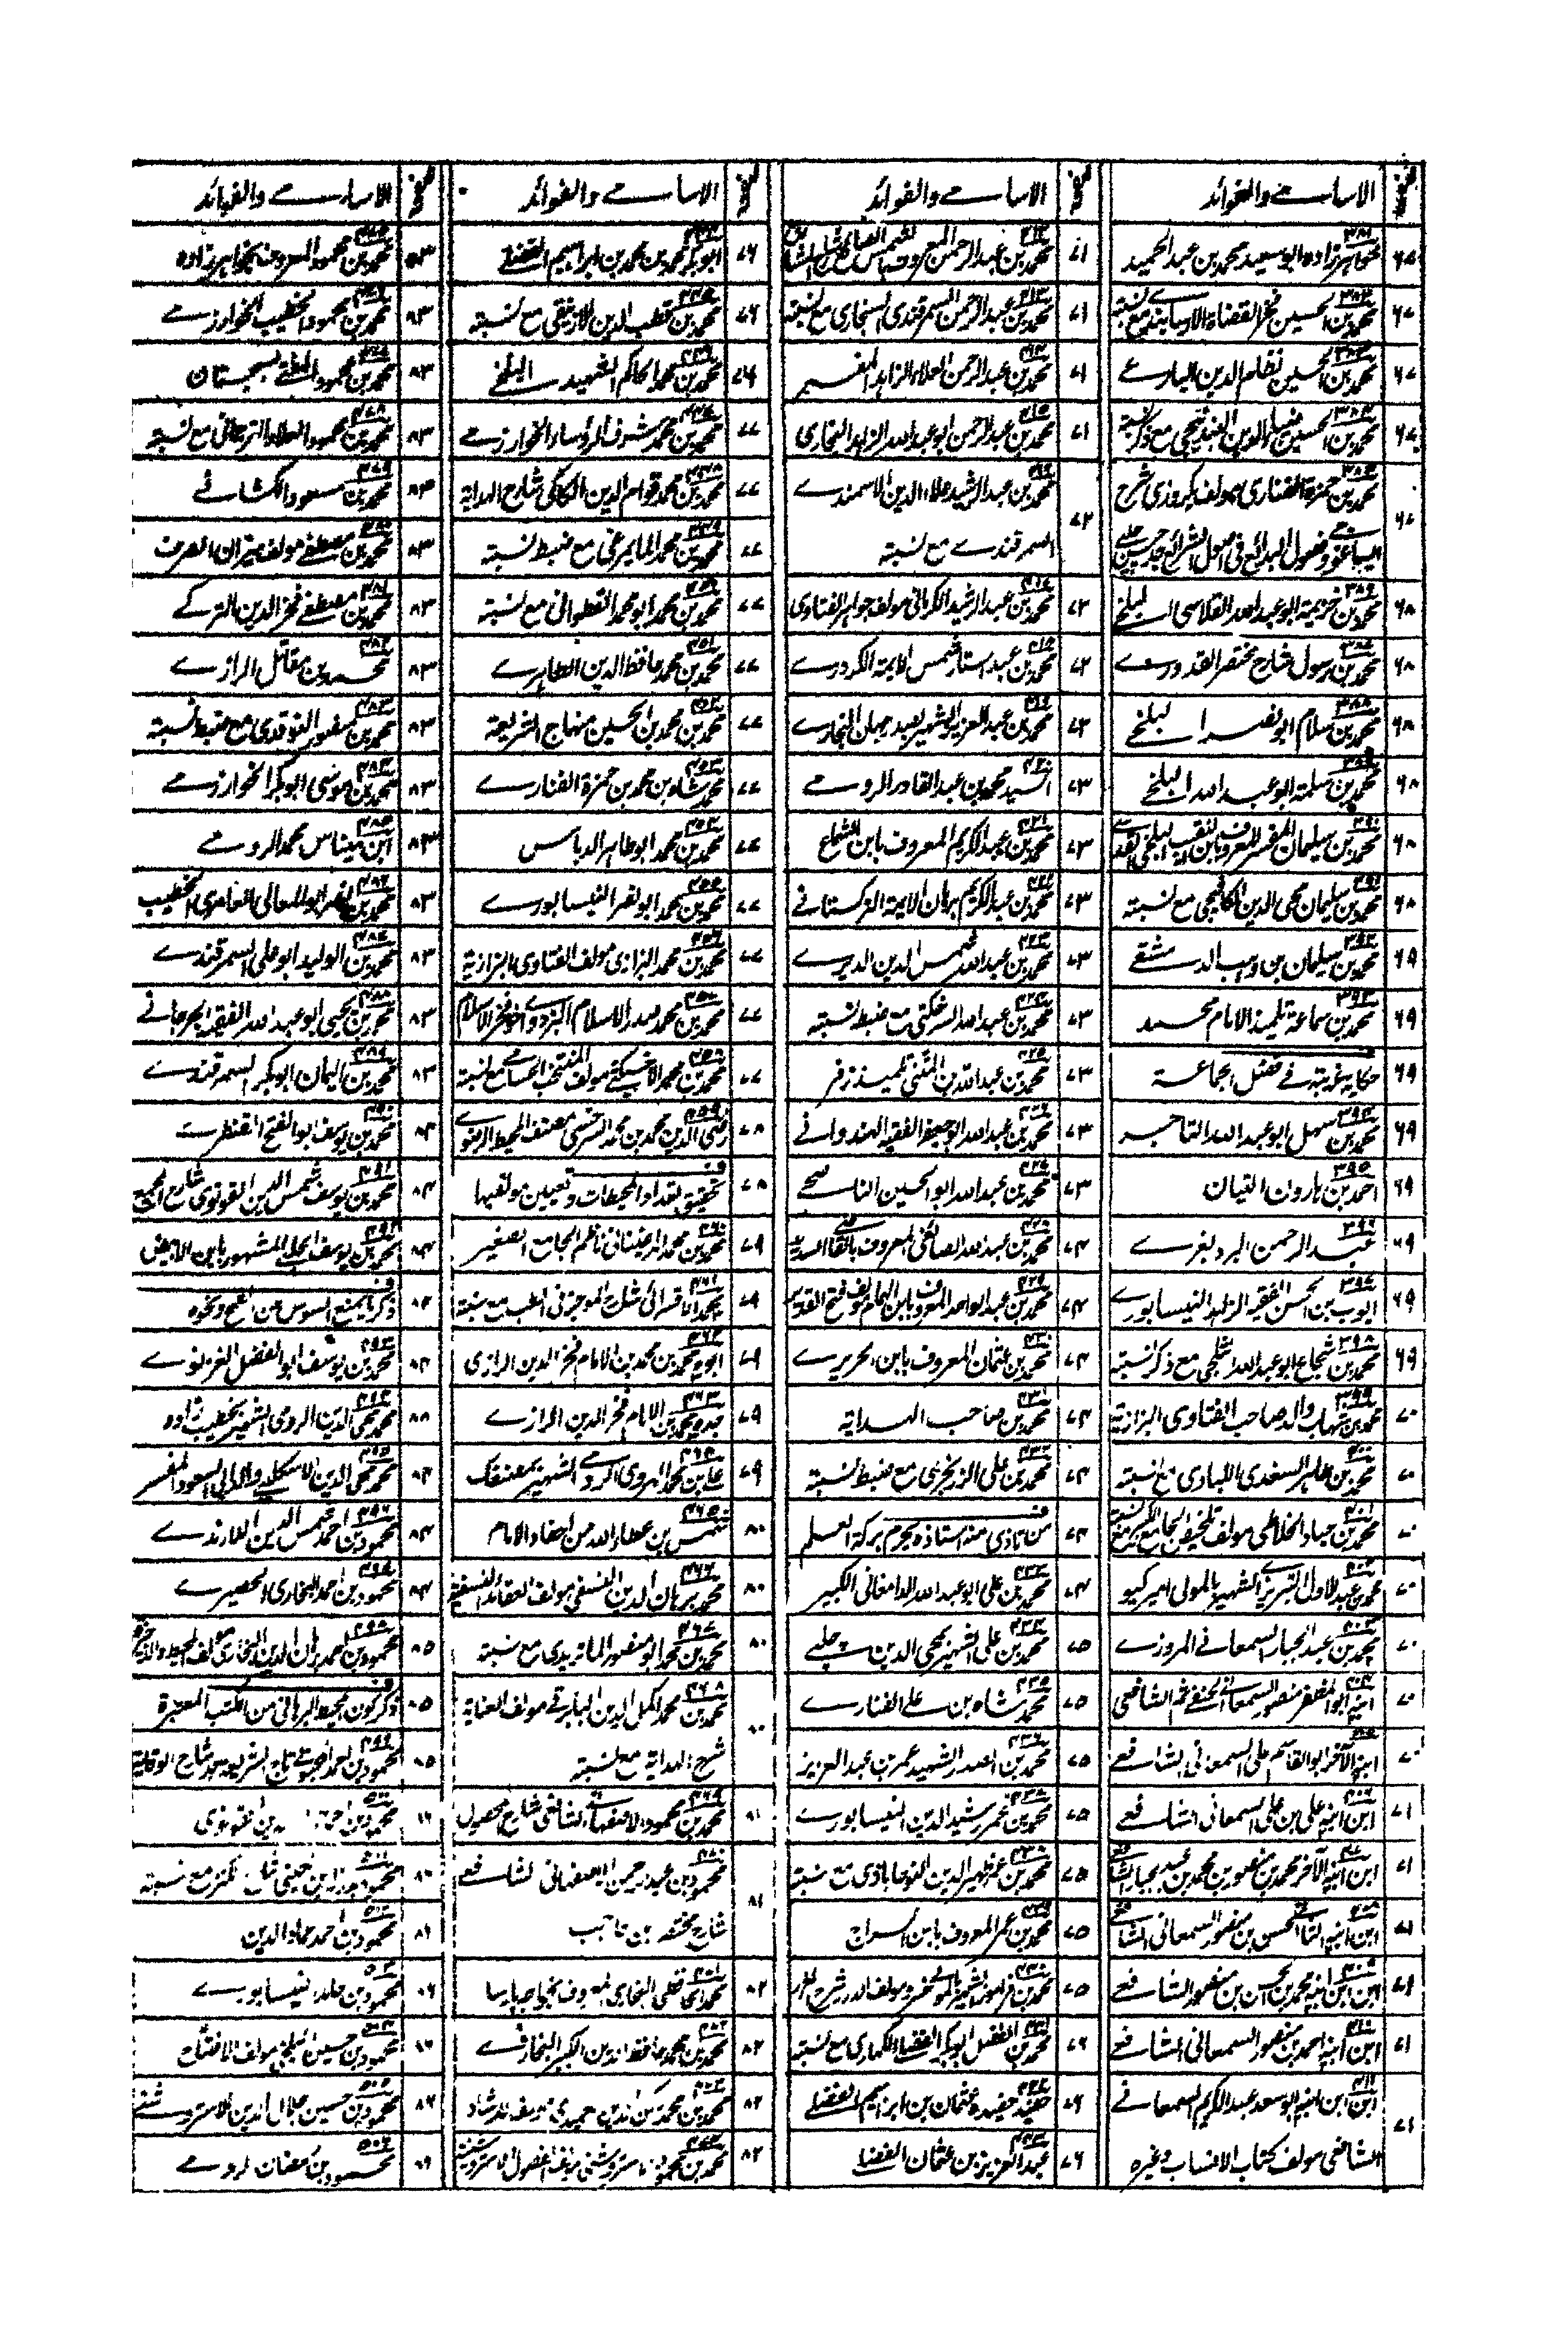 صفحہ الاسامے والفوائد
٦٧ ٣٨١ خواهرزاده ابو سعید محمد بن عبد الحمید
٦٧ ٣٨٢ محمد بن الحسین فخر القضاة الارسابندی مع نسبته
٦٧ ٣٨٣ محمد بن الحسین نظام الدین البارعے
٦٧ محمد بن الحسین ضیاء الدین البندنیجی مع ذکر نسبته
٦٧ محمد بن حمزة الفناری مولف
فصول البدائع فی اصول الشرائع
٦٨ ٣٨٦ محمد بن خزیمة ابو عبد الله القلاسی البلخے
٦٨ ٣٨٧ محمد بن رسول شارح مختصر القدورے
٦٨ ٣٨٨ محمد بن سلام ابو نصر البلخے
٦٨ ٣٨٩ محمد بن سلمة ابو عبد الله البلخے
٦٨ ٣٩٠ محمد بن سلیمان المفسر المعروف بابن النقیب البلخی القدسے
٦٨ ٣٩١ محمد بن سلیمان محی الدین الکافیجی مع نسبته
٦٩ ٣٩٢ محمد بن سلیمان بن وهیب الدمشقے
٦٩ ٣٩٣ محمد بن سماعة تلمیذ الامام محمد
٦٩ حکایة غریبة فے فضل الجماعة
٦٩ ٣٩٤ محمد بن سهل ابو عبد الله التاجر
٦٩ ٣٩٥ احمد بن هارون التبان
٦٩ ٣٩٦ عبد الرحمن الیزدیغرے
٦٩ ٣٩٧ ایوب بن الحسن الفقیه الزاهد النیسابورے
٦٩ ٣٩٨ محمد بن شجاع ابو عبد الله الثلجی مع ذکر نسبته
٧٠ ٣٩٩ محمد بن شهاب والد صاحب الفتاوی البزازیة
٧٠ ٤٠٠ محمد بن طاهر السغدی اللبادی مع نسبته
٧٠ ٤٠١ محمد بن عباد الخلاطی مولف تلخیص الجامع الکبیر مع نسبته
٧٠ ٤٠٢ محمد بن عبد الاول التبریزی الشهیر بالمولی امیر کیسو
٧٠ ٤٠٣ محمد بن عبد الجبار السمعانے المروزے
٧٠ ٤٠٤ ابنه ابو المظفر منصور السمعانی الحنفی ثم الشافعی
٧٠ ٤٠٥ ابنه الآخر ابو القاسم علی السمعانی الشافعے
٧١ ٤٠٦ ابن ابنه علی بن علی السمعانی الشافعے
٧١ ٤٠٧ ابن ابنه الآخر محمد بن منصور بن محمد بن عبد الجبار الشافعے
٧١ ٤٠٨ ابن ابنه الثانی الحسن بن منصور السمعانی الشافعے
٧١ ٤٠٩ ابن ابن ابنه محمد بن الحسن بن منصور الشافعے
٧١ ٤١٠ ابن ابنه احمد بن منصور السمعانی الشافعے
٧١ ٤١١ ابن ابن ابنه ابو سعد عبد الکریم السمعانے
الشافعی مولف کتاب الانساب وغیره
صفحہ الاسامے والفوائد
٧١ ٤١٢ محمد بن عبد الرحمن المعروف بشمس الصائغ
٧١ ٤١٣ محمد بن عبد الرحمن السمرقندی السنجاری مع نسبته
٧١ ٤١٤ محمد بن عبد الرحمن العلاء الزاهد المفسر
٧١ ٤١٥ محمد بن عبد الرحمن ابو عبد الله الزاهد البخاری
٧٢ ٤١٦ محمد بن عبد الرشید علاء الدین الاسمندے
السمرقندے مع نسبته
٧٢ ٤١٧ محمد بن عبد الرشید الکرمانی مولف جواهر الفتاوی
٧٢ ٤١٨ محمد بن عبد الستار شمس الایمة الکردرے
٧٢ ٤١٩ محمد بن عبد العزیز الشهیر بصدر جهان البخارے
٧٣ ٤٢٠ السید محمد بن عبد القادر الرومے
٧٣ ٤٢١ محمد بن عبد الکریم المعروف بابن الشماع
٧٣ ٤٢٢ محمد بن عبد الکریم برهان الایمة الترکستانے
٧٣ ٤٢٣ محمد بن عبد الله شمس الدین الدیرے
٧٣ ٤٢٤ محمد بن عبد الله السرخکتی مع ضبط نسبته
٧٣ ٤٢٥ محمد بن عبد الله بن المثنی تلمیذ زفر
٧٣ ٤٢٦ محمد بن عبد الله ابو جعفر الفقیه الهندوانے
٧٣ ٤٢٧ محمد بن عبد الله ابو الحسین الناصحے
٧٤ ٤٢٨ محمد بن عبد الله الصائغی المعروف بالقاضی السدید
٧٤ ٤٢٩ محمد بن عبد الواحد المعروف بابن الهمام مولف فتح القدیر
٧٤ ٤٣٠ محمد بن عثمان المعروف بابن الحریرے
٧٤ ٤٣١ محمد بن صاحب الهدایة
٧٤ ٤٣٢ محمد بن علی الزرنجری مع ضبط نسبته
٧٤ من تاذی منه استاذه یحرم برکة العلم
٧٤ ٤٣٣ محمد بن علی ابو عبد الله الدامغانی الکبیر
٧٥ ٤٣٤ محمد بن علی الشهیر بمحی الدین چلپے
٧٥ ٤٣٥ محمد شاه بن علی الفنارے
٧٥ ٤٣٦ محمد بن الصدر الشهید عمر بن عبد العزیز
٧٥ ٤٣٧ محمد بن عمر رشید الدین النیسابورے
٧٥ ٤٣٨ محمد بن عمر ظهیر الدین النوجاباذی مع نسبته
٧٥ ٤٣٩ محمد بن عمر المعروف بابن السراج
٧٥ ٤٤٠ محمد بن فراموز الشهیر بالمولی خسرو مولف الدرر شرح الغرر
٧٦ ٤٤١ محمد بن الفضل ابو بکر الفضلی الکماری مع نسبته
٧٦ ٤٤٢ حفید حفیده عثمان بن ابراهیم الفضلے
٧٦ ٤٤٣ عبد العزیز بن عثمان الفضلے
صفحہ الاسامے والفوائد
٧٦ ٤٤٤ ابو بکر محمد بن محمد بن ابراهیم الفضلے
٧٦ ٤٤٥ محمد بن قطب الدین الازنیقی مع نسبته
٧٦ ٤٤٦ محمد بن محمد الحاکم الشهید البلخے
٧٧ ٤٤٧ محمد بن محمد شرف الرؤساء الخوارزمے
٧٧ ٤٤٨ محمد بن محمد قوام الدین الکاکی شارح الهدایة
٧٧ ٤٤٩ محمد بن محمد المایمرغی مع ضبط نسبته
٧٧ محمد بن محمد ابو محمد القطوانی مع نسبته
٧٧ ٤٥١ محمد بن محمد حافظ الدین الطاهرے
٧٧ ٤٥٢ محمد بن محمد بن الحسین منهاج الشریعة
٧٧ ٤٥٣ محمد شاه بن محمد بن حمزة الفنارے
٧٧ ٤٥٤ محمد بن محمد ابو طاهر الدباس
٧٧ ٤٥٥ محمد بن محمد ابو نصر النیسابورے
٧٧ ٤٥٦ محمد بن محمد البزازی مولف الفتاوی البزازیة
٧٧ ٤٥٧ محمد بن محمد صدر الاسلام البزدوی اخو فخر الاسلام
٧٧ ٤٥٨ محمد بن محمد الاخسیکثی مولف المنتخب الحسامی مع نسبته
٧٨ ٤٥٩ رضی الدین محمد بن محمد السرخسی مصنف المحیط الرضوے
٧٨ تحقیق تعداد المحیطات وتعیین مولفیها
٧٩ ٤٦٠ محمد بن محمد المرغینانی ناظم الجامع الصغیر
٧٩ ٤٦١ محمد الاقسرائی شارح الموجز فی الطب مع نسبته
٧٩ ٤٦٢ ابوه محمد بن محمد بن الامام فخر الدین الرازی
٧٩ ٤٦٣ جده محمد بن الامام فخر الدین الرازے
٧٩ ٤٦٤ علی بن محمد الهروی الرومی الشهیر بمصنفک
٨٠ ٤٦٥ شمس بن عطاء الله من احفاد الامام
٨٠ ٤٦٦ محمد برهان الدین النسفی مولف العقائد النسفیة
٨٠ ٤٦٧ محمد بن محمد ابو منصور الماتریدی مع نسبته
٨٠ ٤٦٨ محمد بن محمد اکمل الدین البابرتی مولف العنایة
شرح الهدایة مع نسبته
٨١ ٤٦٩ محمد بن محمود الاصفهانی الشافعی شارح المحصول
٨١ ٤٧٠ محمود بن عبد الرحمن الاصفهانی الشافعے
شارح مختصر بن حاجب
٨٢ ٤٧١ محمد الحافظی البخاری المعروف بخواجه پارسا
٨٢ ٤٧٢ محمد بن محمد حافظ الدین الکبیر البخارے
٨٢ ٤٧٣ محمد بن محمد رکن الدین العمیدی مولف الارشاد
٨٢ ٤٧٤ محمد بن محمود الاستروشنی مولف الفصول الاستروشنیة
صفحہ الاسامے والفوائد
٨٣ ٤٧٥ محمد بن محمود المعروف بخواهرزاده
٨٣ ٤٧٦ محمد بن محمود الخطیب الخوارزمے
٨٣ ٤٧٧ محمد بن محمود المفتے بسجستان
٨٣ ٤٧٨ محمد بن محمود العلاء الترجمانی مع نسبته
٨٣ ٤٧٩ محمد بن مسعود الکشانے
٨٣ ٤٨٠ محمد بن مصطفے مولف میزان الصرف
٨٣ ٤٨١ محمد بن مصطفے فخر الدین الترکے
٨٣ ٤٨٢ محمد بن مقاتل الرازے
٨٣ ٤٨٣ محمد بن منصور النوقدی مع ضبط نسبته
٨٣ ٤٨٤ محمد بن موسی ابو بکر الخوارزمے
٨٣ ٤٨٥ ابن میناس محمد الرومے
٨٣ ٤٨٦ محمد بن نصر ابو المعالی العامری الخطیب
٨٣ ٤٨٧ محمد بن الولید ابو علی السمرقندے
٨٣ ٤٨٨ محمد بن یحیی ابو عبد الله الفقیه الجرجانے
٨٣ ٤٨٩ محمد بن الیمان ابو بکر السمرقندے
٨٤ ٤٩٠ محمد بن یوسف ابو الفتح القنطرے
٨٤ ٤٩١ محمد بن یوسف شمس الدین القونوی شارح المجمع
٨٤ ٤٩٢ محمد بن یوسف الحلبی المشهور بابن الابیض
٨٤ ذکر ما یمنع السوس من القمح ونحوه
٨٤ ٤٩٣ محمد بن یوسف ابو الفضل الغزنوے
٨٤ ٤٩٤ محمد محی الدین الرومی الشهیر بخطیب زاده
٨٤ ٤٩٥ محمد محی الدین الاسکلیبی والد ابی السعود المفسر
٨٤ ٤٩٦ محمود بن احمد شمس الدین الفارندے
٨٤ ٤٩٧ محمود بن احمد البخاری الحصیرے
٨٥ ٤٩٨ محمود بن احمد برهان الدین البخاری مولف المحیط والذخیرة
٨٥ ذکر کون المحیط البرهانی من الکتب المعتبرة
٨٥ ٤٩٩ محمود بن احمد المحبوبی تاج الشریعة جد شارح الوقایة
٥٠٠ محمود بن احمد القونوی
٥٠١ محمود بن احمد العینی شارح الکنز مع نسبته
٨٦ ٥٠٢ محمود بن احمد عماد الدین
٨٦ ٥٠٣ محمود بن عابد النیسابورے
٨٦ ٥٠٤ محمود بن حسین البلخی مولف الافتتاح
٨٦ ٥٠٥ محمود بن حسین جلال الدین الاستروشنے
٨٦ ٥٠٦ محمود بن رمضان الرومے